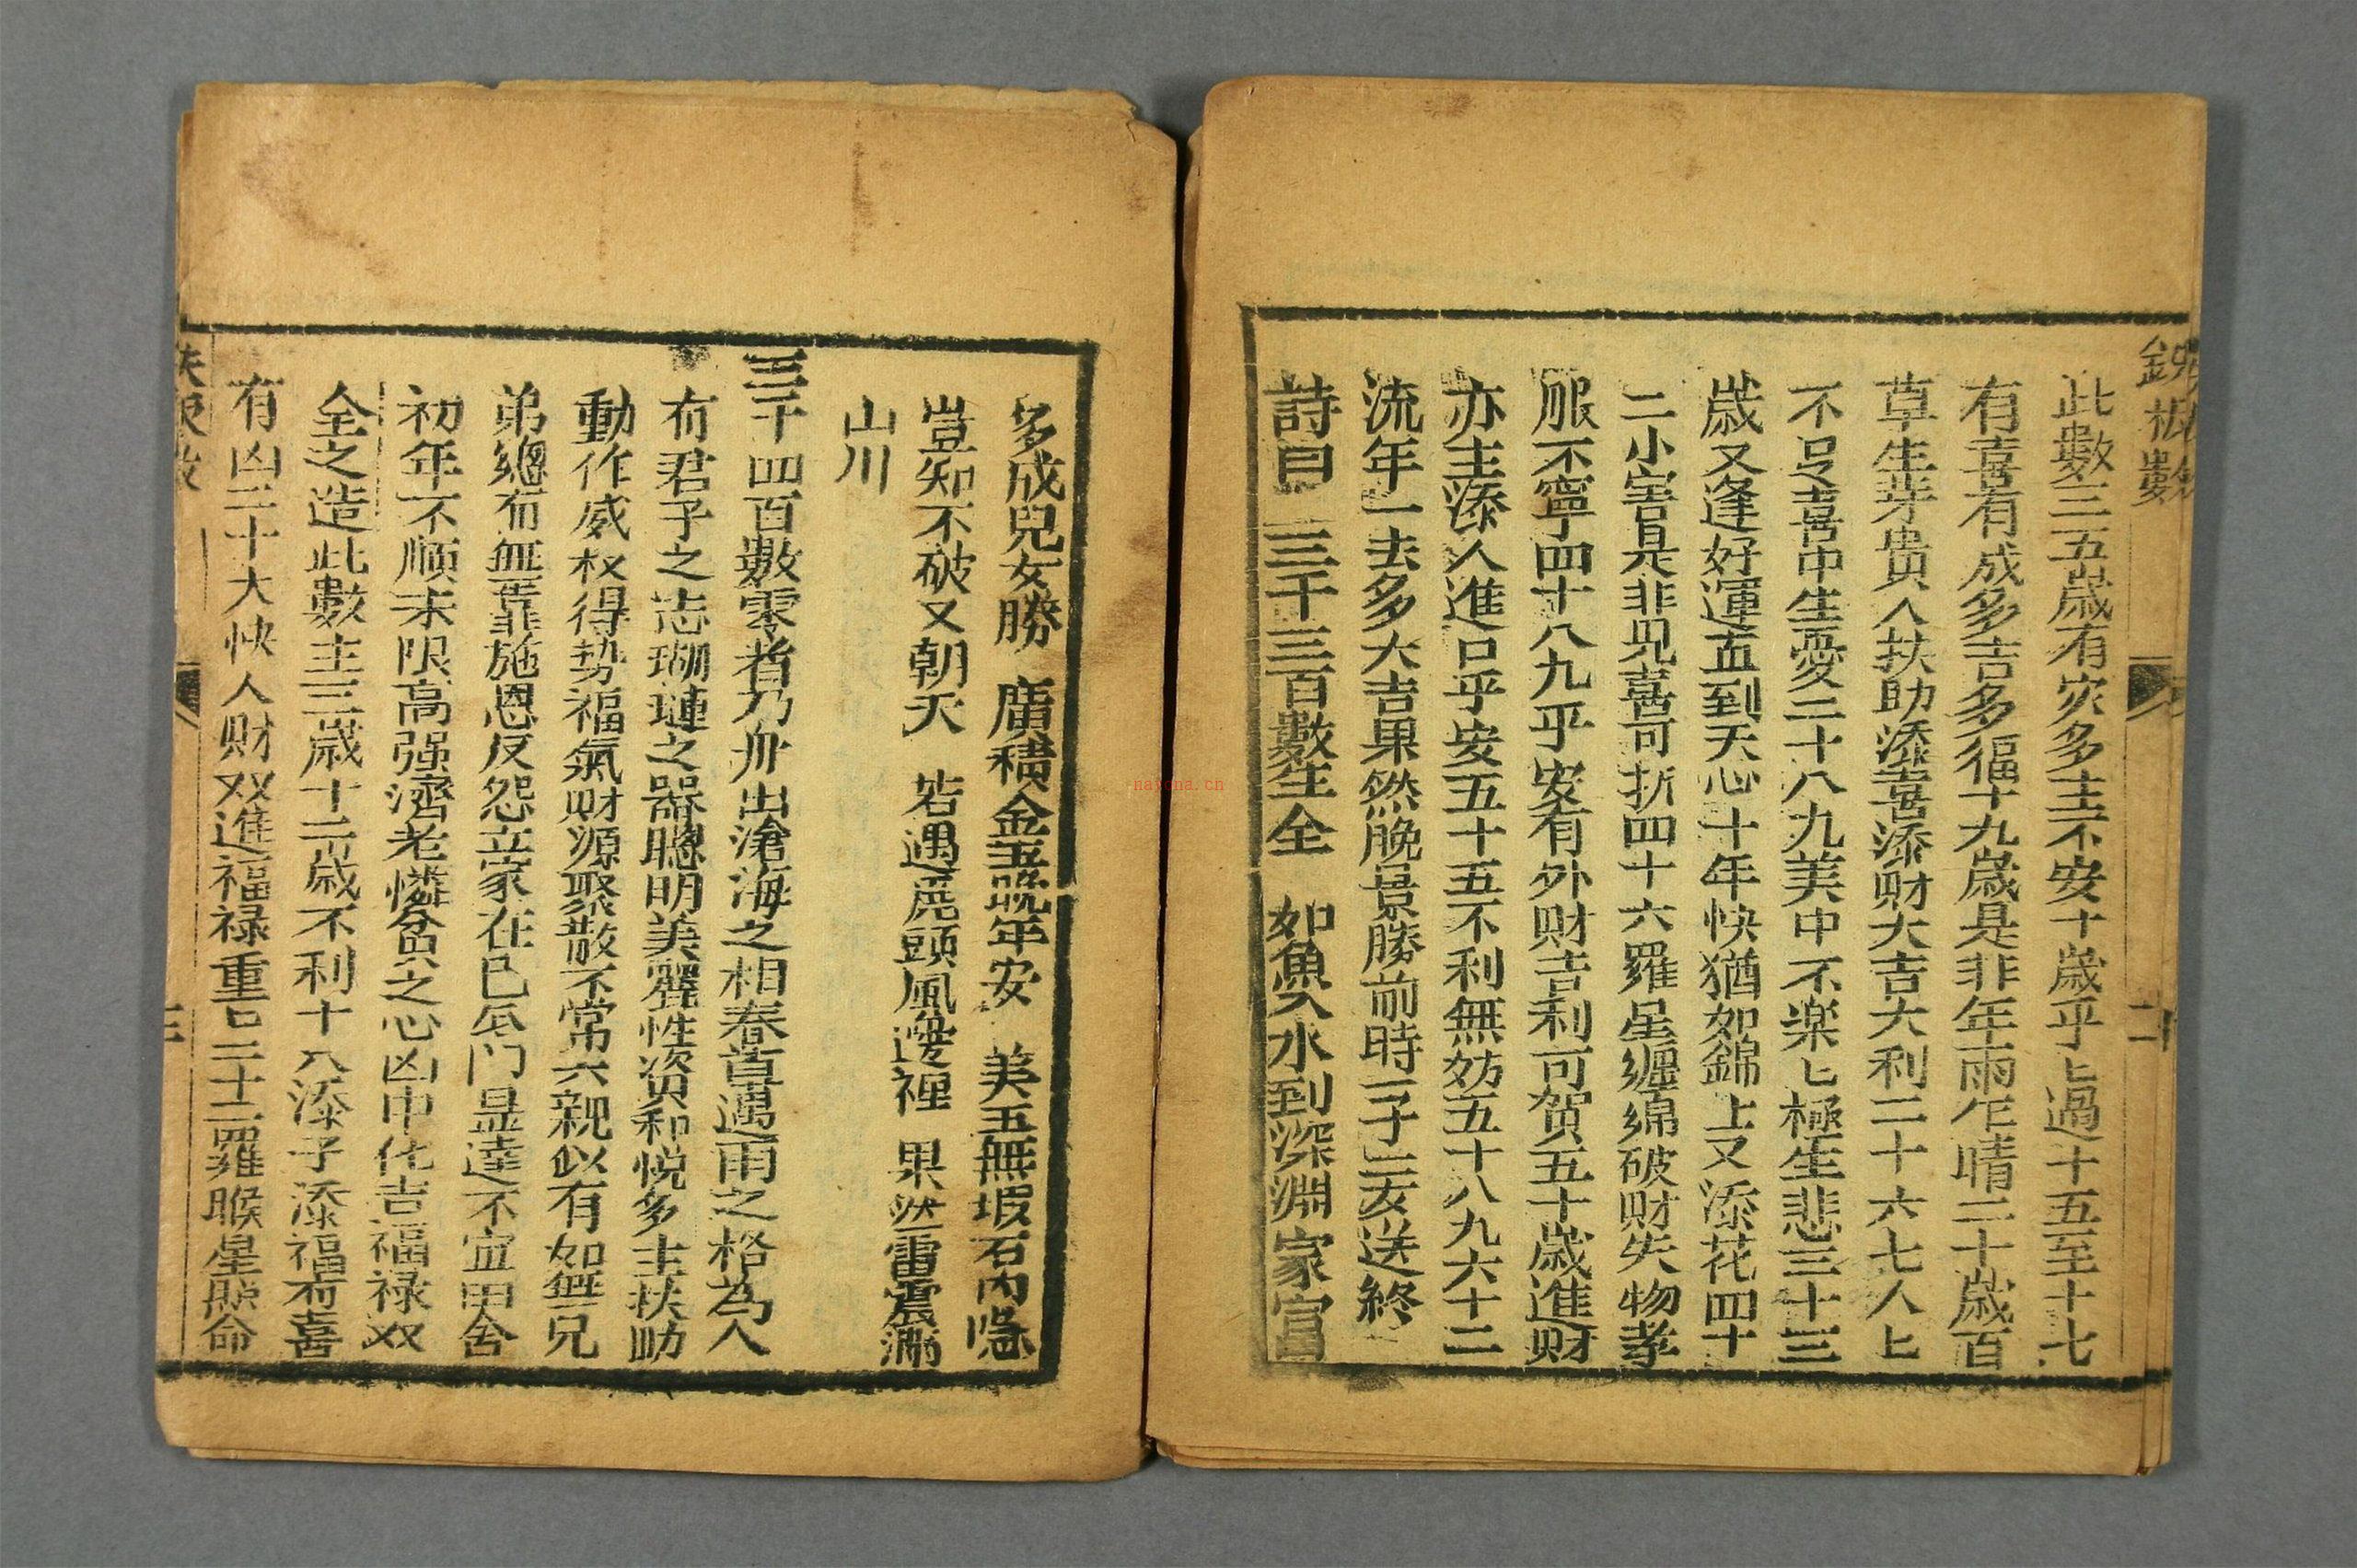 鉄板數
此數三五歲有災多主不安十歲平上過十五至十七
有喜有成多吉多福十九歲是非年雨乍晴二十歲百
草生芽貴人扶助添喜添財大吉大利二十六七人上
不足喜中生憂二十八九美中不樂上極生悲三十三
歲又逢好運直到天心十年快猶如錦上又添花四十
二小害是非見喜可折四十六羅星纏綿破財失物孝
服不寧四十八九平安有外財吉利可賀五十歲進財
亦主添人進口平安五十五不利無妨五十八九六十二
流年一去多大吉果然晚景勝前時一子二女送終
詩曰 三千三百數生全 如魚入水到深淵 家富
多成兒女勝 廣積金玉晩年安 美玉無瑕石內隱
豈知不破又朝天 若遇馬頭風邊裡 果然雷震滿
山川
三千四百數零者乃舟出滄海之相春苗遇雨之格為人
有君子之志瑚璉之器聰明美麗性資和悅多主扶助
動作威权得势福氣財源聚散不常六親似有如無兄
弟總有無靠施恩反怨立家在已辰门显達不宜田舍
初年不順末限高强濟老憐貧之心凶中化吉福禄双
全之造此數主三歲十二歲不利十八添子添福有喜
有凶二十大快人財双進福禄重重二十二羅睺星照命
三
nayona.cn